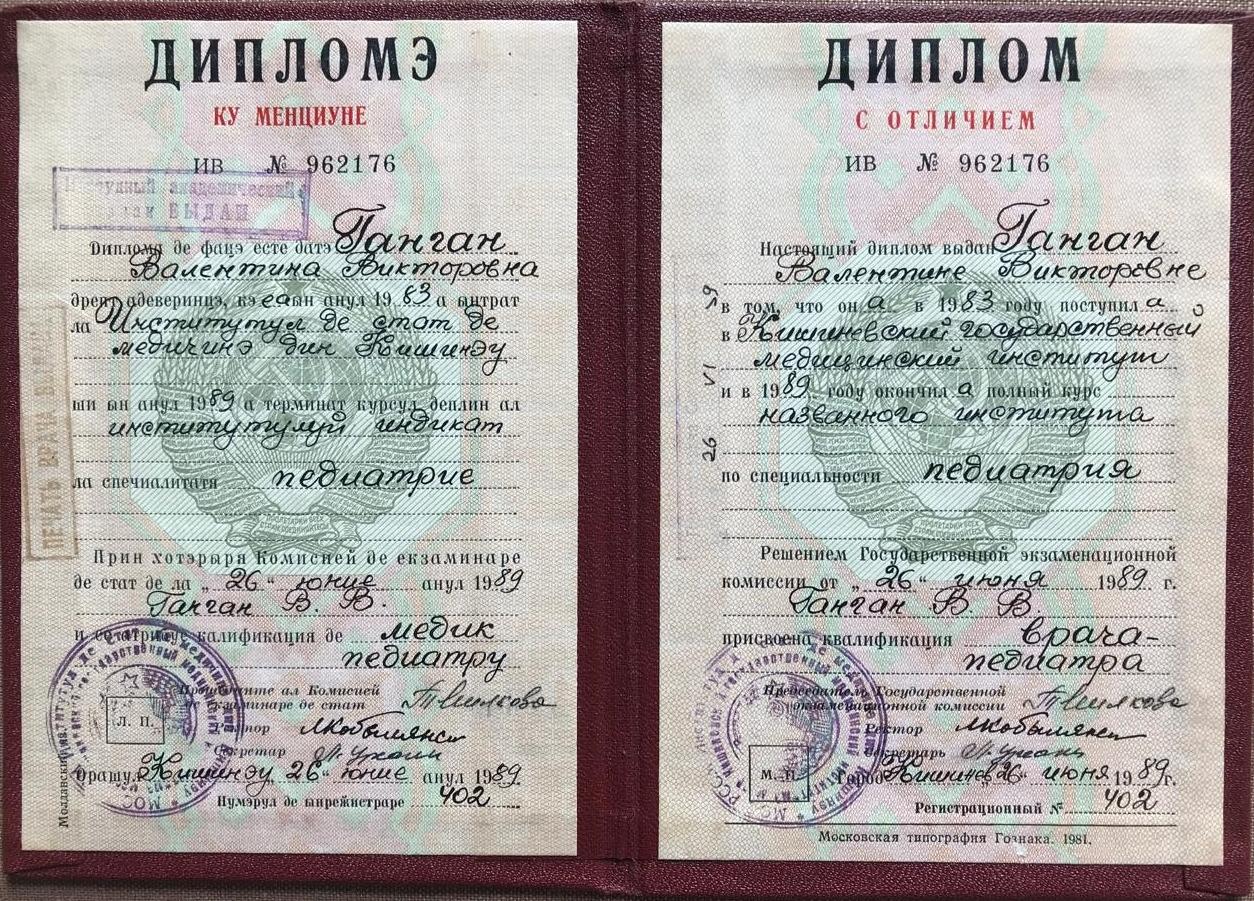 ДИПЛОМЭ
КУ МЕНЦИУНЕ
ИВ № 962176
академический
ВЫДАН
Диплома де фацэ есте датэ Ганган
Валентина Викторовна
дрепт адеверинцэ, кэ еа ын анул 1983 а ынтрат
ла Институтул де стат де
медичинэ дин Кишинэу
ши ын анул 1989 а терминат курсул деплин ал
институтулуй индикат
ла спечиалитатя педиатрие
Прин хотэрыря Комисией де екзаминаре
де стат де ла „26“ юние анул 1989
Ганган В. В.
и се атрибуе калификация де медик
педиатру
Прешединте ал Комисией
де екзаминаре де стат
Ректор
Секретар
Орашул Кишинэу 26“ юние анул 1989
Нумэрул де ынрежистраре 402
Л. П.
ПЕЧАТЬ ВРАЧА
ДИПЛОМ
С ОТЛИЧИЕМ
ИВ № 962176
Настоящий диплом выдан Ганган
Валентине Викторовне
в том, что она в 1983 году поступила
в Кишиневский государственный
медицинский институт
и в 1989 году окончила полный курс
названного института
по специальности педиатрия
Решением Государственной экзаменационной
комиссии от „26“ июня 1989 г.
Ганган В. В.
присвоена квалификация врача-
педиатра
Председатель Государственной
экзаменационной комиссии
Ректор
Секретарь
Город Кишинев „26“ июня 1989 г.
М. П.
Регистрационный № 402
Московская типография Гознака. 1981.
26 VI 89